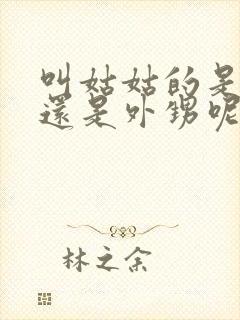 叫姑姑的是
還是外甥呢
林之余